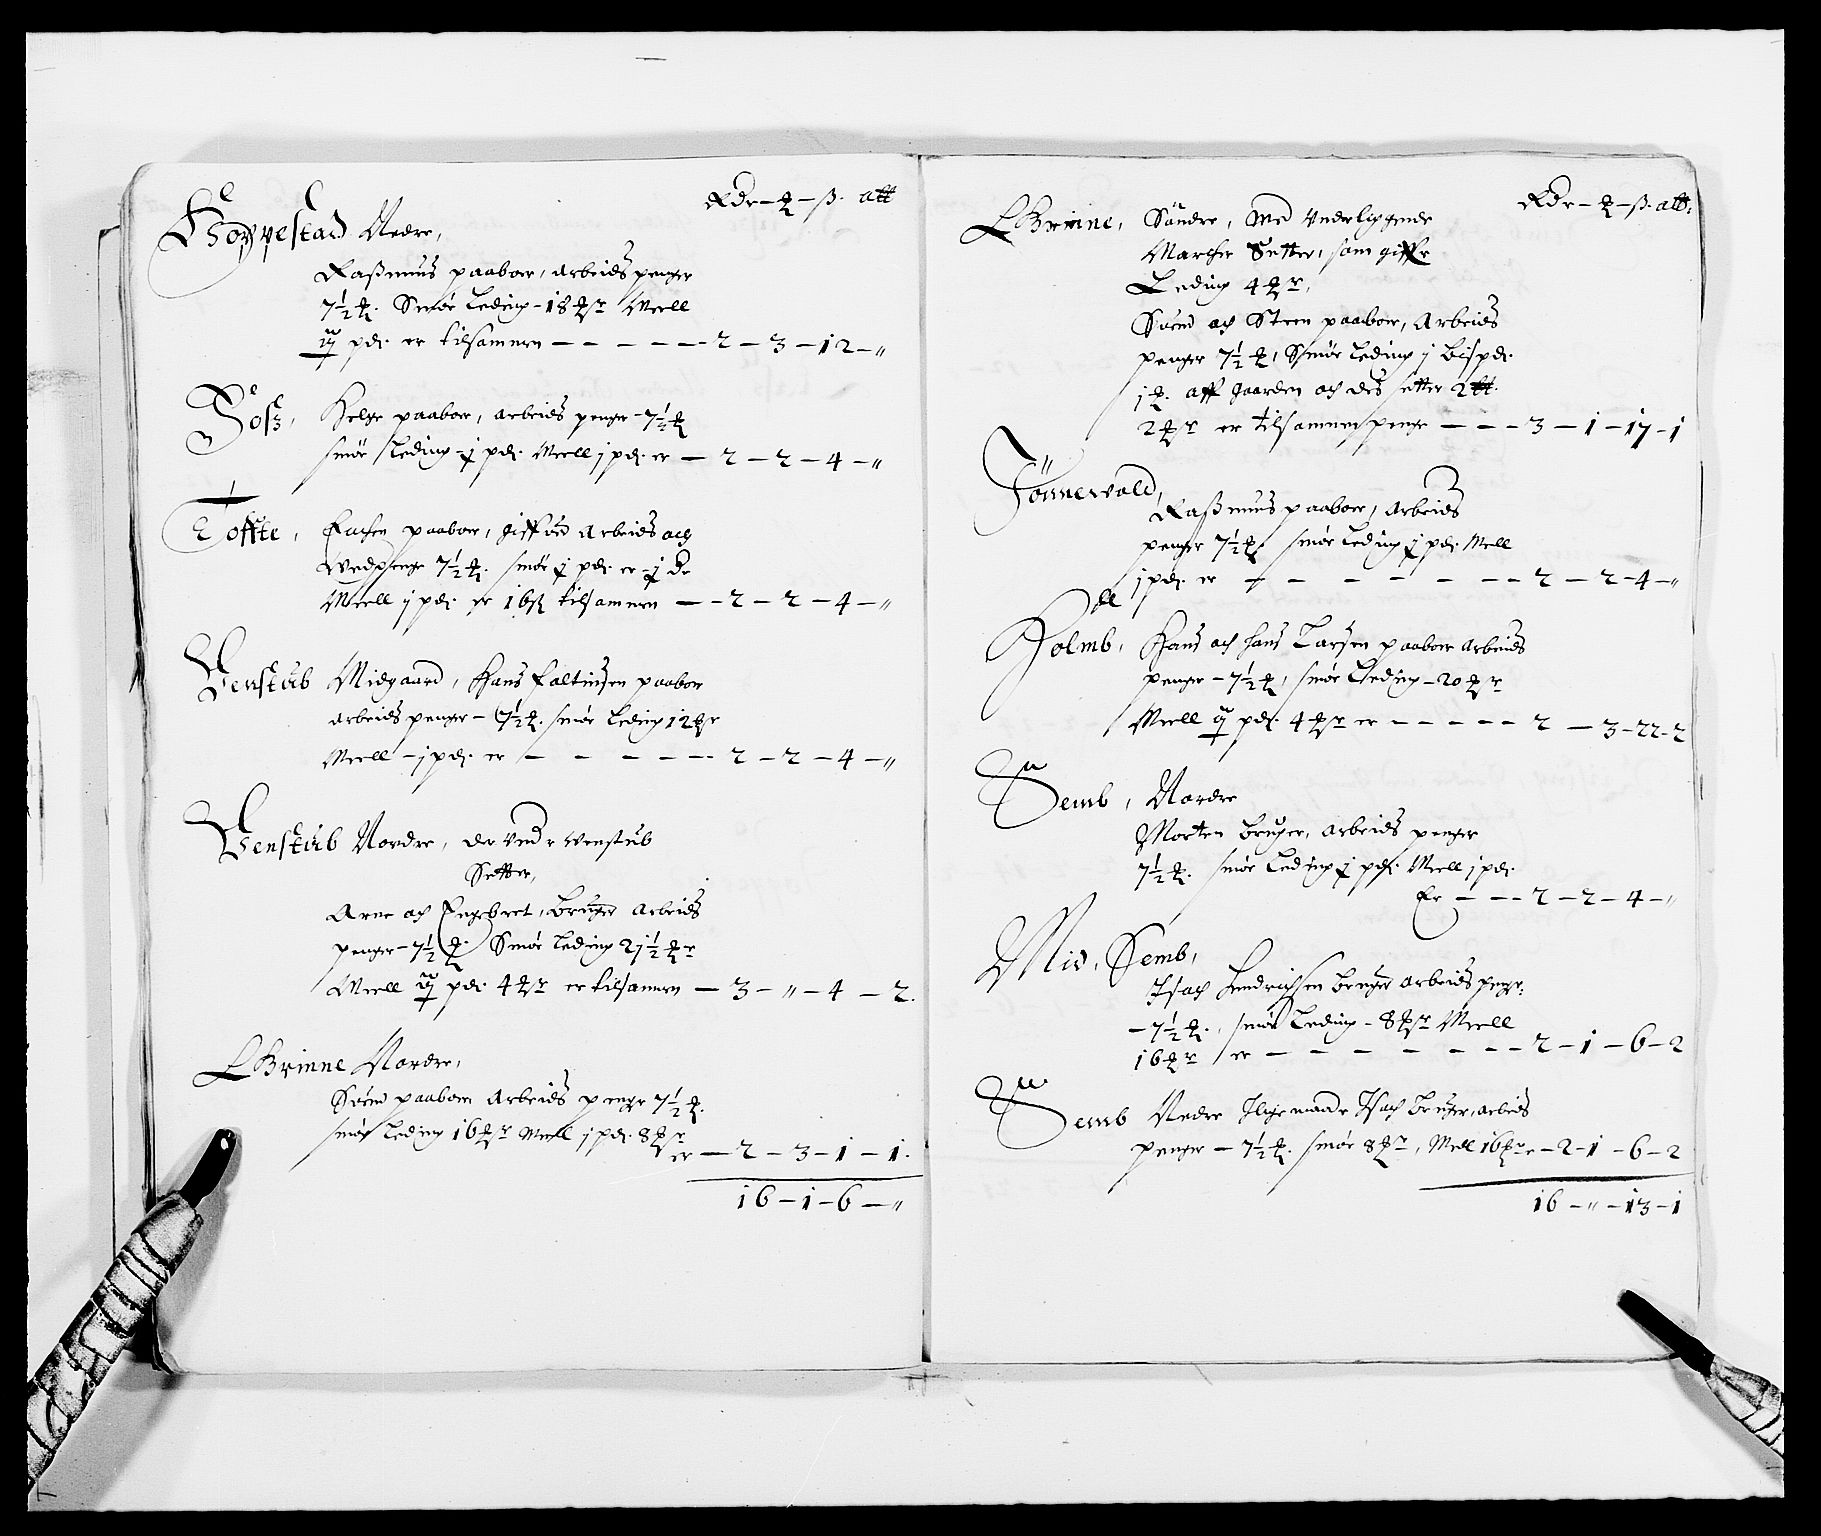 Rdr – ꝥ – ß. alb
Goppestad Nedre,
Rasmus paaboer, arbeids penger
7½ ꝥ. Smør Leding – 18 ꝥr Meell
pd. er tilsamen – – – – – 2 – 3 – 12 – "
Foss, Helge paaboer, arbeids penge – 7½ ꝥ
smør Leding – j pd. Meell j pd. er – 2 – 2 – 4 – "
Toffte, paaboer, giffuer Arbeids och
Wedpenge 7½ ꝥ. smør j pd. er
Meell j pd. er 16 tilsamen – – 2 – 2 – 4 – "
Venstub Midgaard, Hans Faltinsen paaboer
Arbeids penger – 7½ ꝥ. smør Leding 12 ꝥr
Meell – j pd. er – – – – – 2 – 2 – 4 – "
Venstub Nordre, der Wenstub
Setter,
Arne och Engebret, Bruger Arbeids
penger – 7½ ꝥ. Smør Leding 21½ ꝥr
Meell pd. 4 ꝥr er tilsamen – 3 – " – 4 – 2.
Brinne Nordre,
Suend paaboer Arbeids penge 7½ ꝥ.
smør Leding 16 ꝥr Meell j pd. 8 ꝥr
er – 2 – 3 – 1 – 1.
16 – 1 – 6 – "
Rdr – ꝥ – ß. alb:
Brinne, Søndre, Med Underliggende
Setter, som giffr
Leding 4 ꝥr,
Suend och Steen paaboer, Arbeids
penger 7½ ꝥ, Smør Leding j Bispd.
1 ꝥ. aff gaarden och des setter 2
2 ꝥr er tilsamen penge – – – 3 – 1 – 17 – 1
Jønnevald,
Rasmus paaboer, Arbeids
penger 7½ ꝥ. smør Leding j pd. Mell
j pd. er – – – – – – – 2 – 2 – 4 – "
Holmb, Hans och Hans Larsen paaboer Arbeids
penger – 7½ ꝥ, smør Leding – 20 ꝥr
Meell pd. 4 ꝥr er – – – – – 2 – 3 – 22 – 2
Semb, Nordre
Morten Bruger, Arbeids penger
7½ ꝥ. smør Leding j pd. Meell j pd.
Er – – – 2 – 2 – 4 – "
Mid, Semb,
Isach Hendrichsen Bruger Arbeids penge:
– 7½ ꝥ. smør Leding – 8 ꝥr Meell
16 ꝥr er – – – – – – – 2 – 1 – 6 – 2
Semb Nedre Ilige maade Isach Bruger, Arbeids
penger – 7½ ꝥ. smør 8 ꝥr, Mell 16 ꝥr er – 2 – 1 – 6 – 2
16 – " – 13 – 1